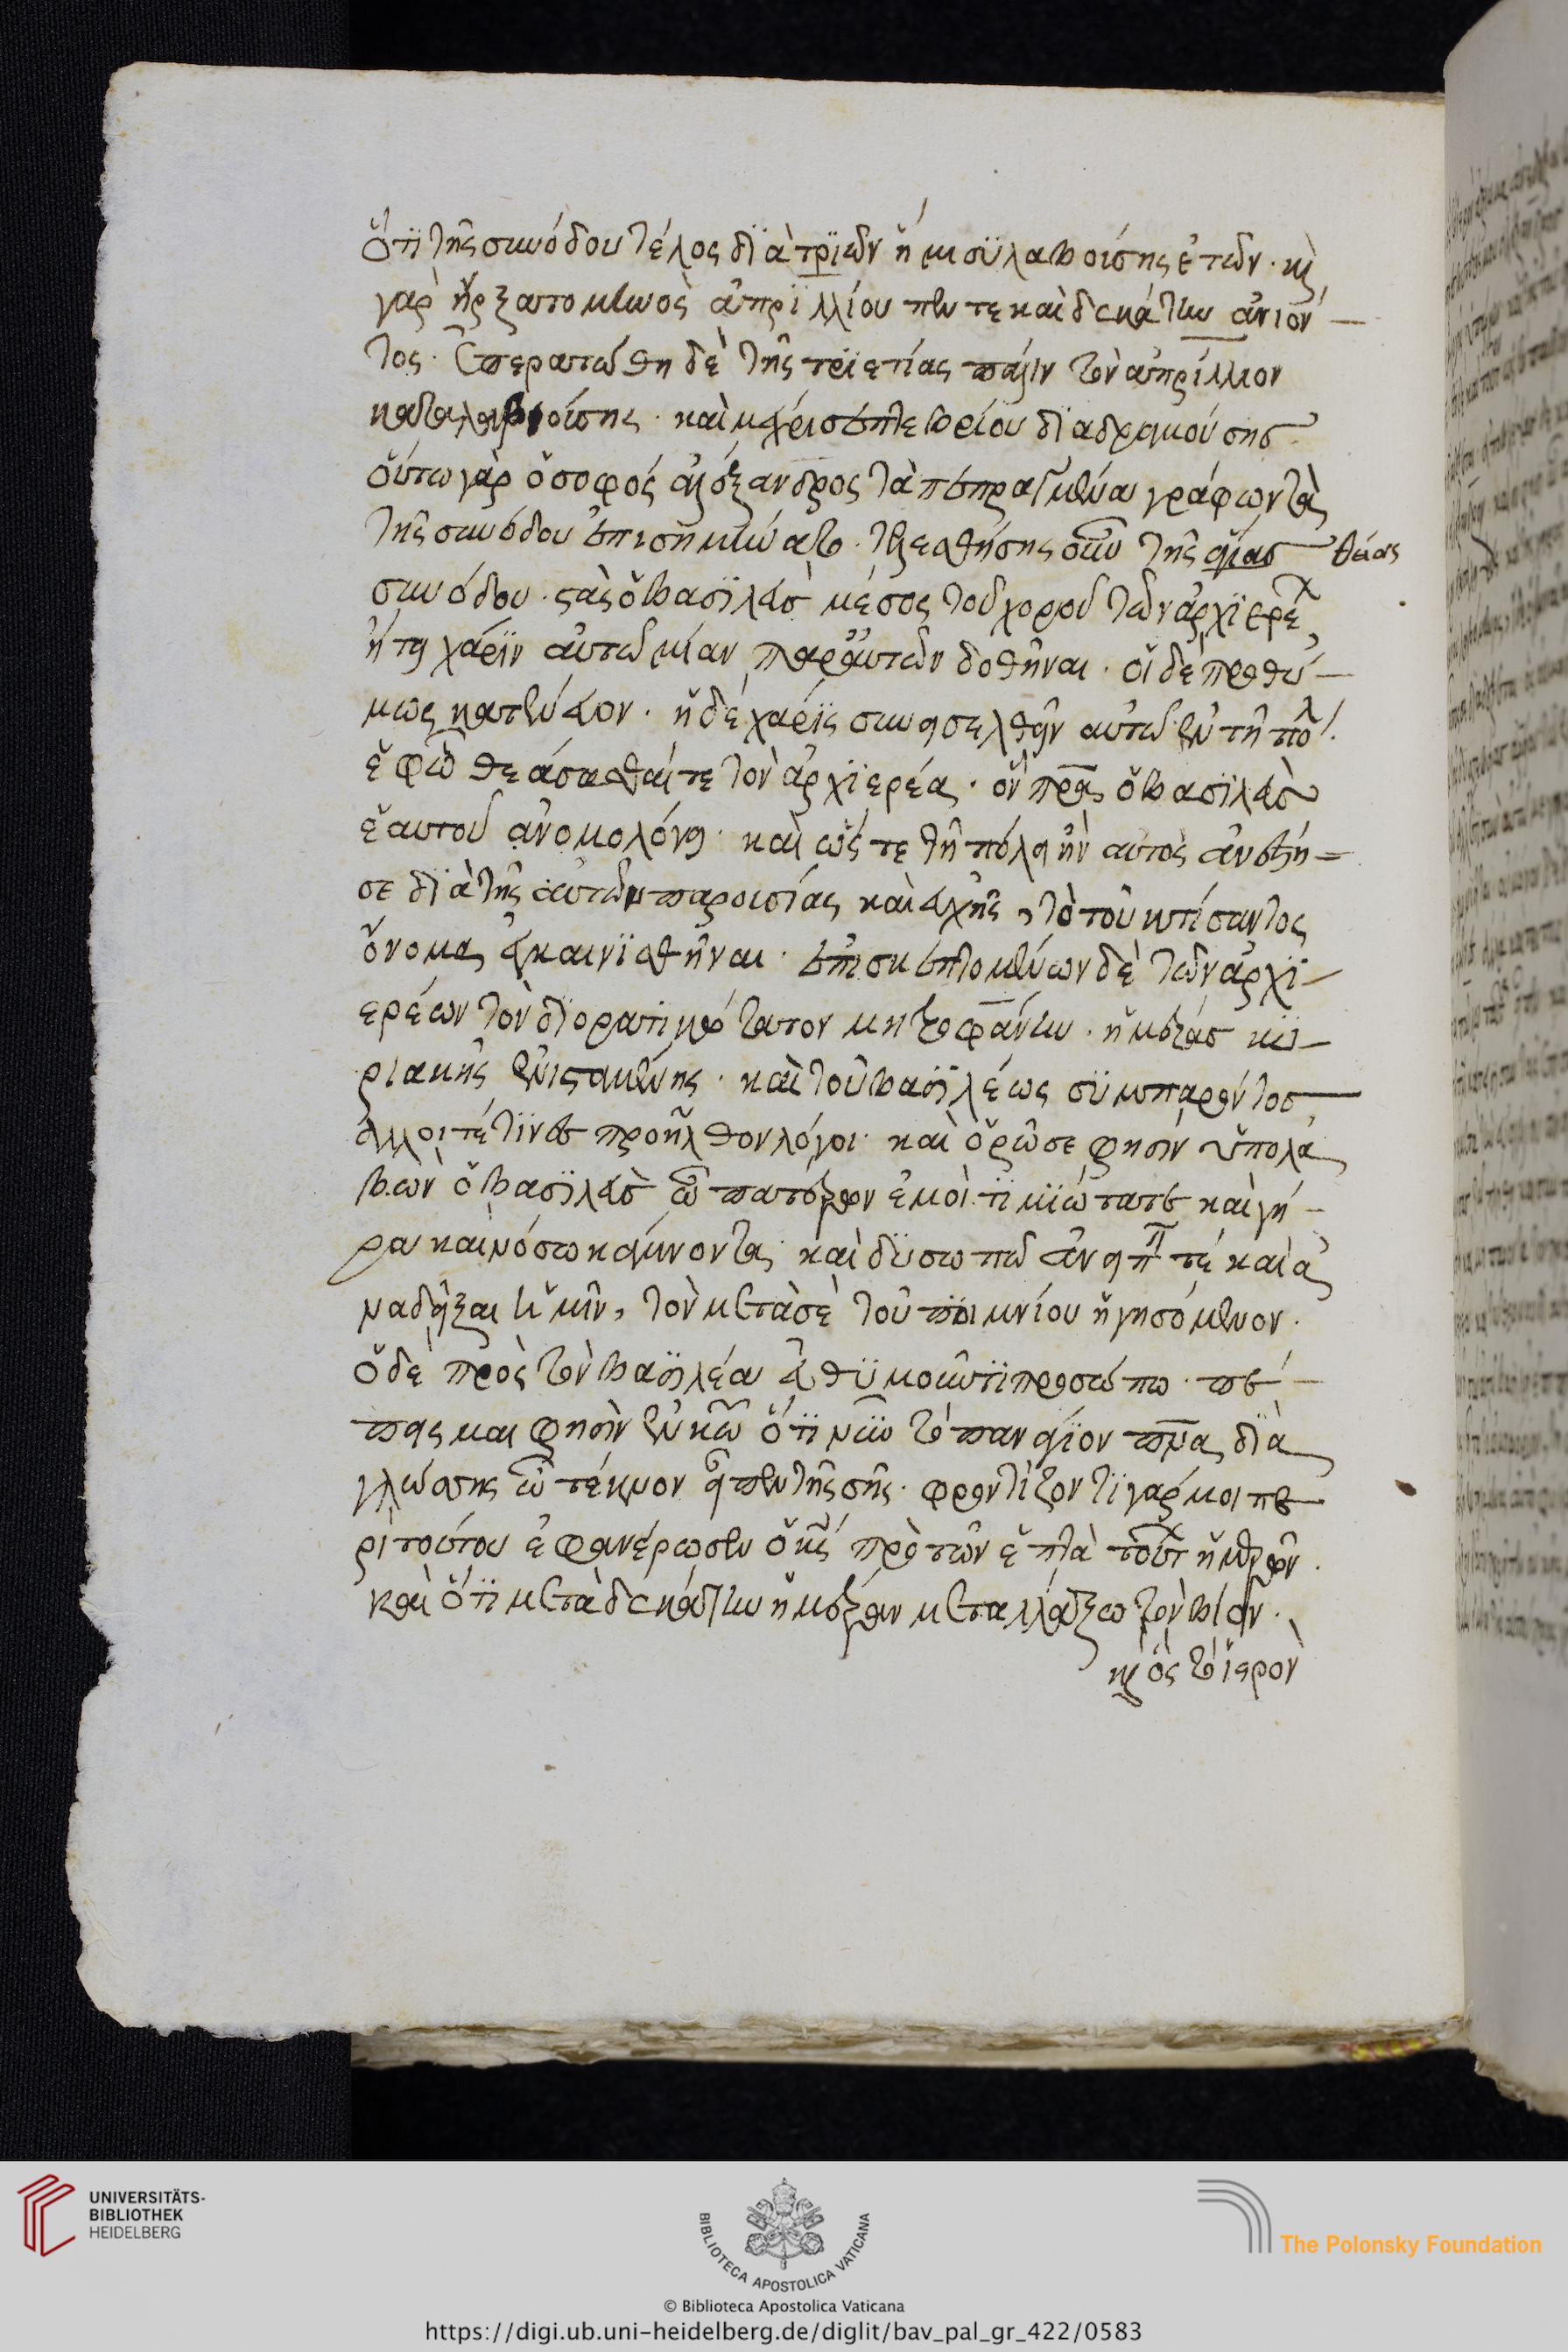 ὅτι τῆς συνόδου τέλος διὰ τριῶν ἥμισυ λαβούσης ἐτῶν. καὶ
γὰρ ἤρξατο μηνὸς ἀπριλλίου πεντεκαιδεκάτην ἀνιόν
τος. ἐπερατώθη δὲ τῆς τριετίας πάλιν τὸν ἀπρίλλιον
καταλαβούσης. καὶ μέχρι σεπτεβρίου διαδραμούσης.
οὕτω γὰρ ὁ σοφός ἀλέξανδρος τὰ πεπραγμένα γράφων τὰ
τῆς συνόδου ἐπισημήνατο. τελεσθήσης οὖν τῆς ἁγίας θείας
συνόδου. στὰς ὁ βασιλεὺς μέσος τοῦ χοροῦ τῶν ἀρχιερέ
ᾔτει χάριν αὐτῶ μίαν παρ' αὐτῶν δοθῆναι. οἱ δὲ προθύ
μως κατένευον. ἡ δὲ χάρις συνεισελθεῖν αὐτῶ ἐν τῆ πόλ
ἐφ' ὧ θεάσασθαί τε τὸν ἀρχιερέα. ὃν πρα ὁ βασιλεὺς
ἑαυτοῦ ἀνομολόγει. καὶ ὥς τε τῆ πόλει ἣν αὐτὸς ἀνέστη
σε διὰ τῆς αὐτῶν παρουσίας καὶ εὐχῆς, τὸ τοῦ κτίσαντος
ὄνομα ἐγκαινισθῆναι. ἐπισκεπτομένων δὲ τῶν ἀρχι
ερέων τὸν διορατικώτατον μητροφάνην. ἡμέρας κυ
ριακῆς ἐνισταμένης. καὶ τοῦ βασιλέως συμπαρόντος,
ἄλλοι τέ τινες προῆλθον λόγοι. καὶ ὁρῶ σε φησίν ὑπολα
βὼν ὁ βασιλεὺς ὦ πάτερ ἐμοὶ τιμιώτατε καὶ γή
ρα καὶ νόσω κάμνοντα. καὶ δυσωπῶ ἀνειπεῖν τέ καὶ ἀ
ναδεῖξαι ἡμῖν, τὸν μετὰ σὲ τοῦ ποιμνίου ἡγησόμενον.
ὁ δὲ πρὸς τὸν βασιλέα εὐθυμοῦντι προσώπω. πέ
πεισμαι φησὶν ἐν κω ὅτι νῦν τὸ πανάγιον πνα διὰ
γλώσσης ὦ τέκνον εἶπεν τῆς σῆς. φροντίζοντι γάρ μοι πε
ρὶ τούτου ἐφανέρωσεν ὁ κς πρὸ τῶν ἑπτὰ τούτ ἡμερῶν.
καὶ ὅτι μετὰ δεκάτην ἡμέραν μεταλλάξω τὸν βίον.
πρὸς τὸ ἱερὸν
UNIVERSITÄTS-
BIBLIOTHEK
HEIDELBERG
BIBLIOTECA APOSTOLICA VATICANA
The Polonsky Foundation
© Biblioteca Apostolica Vaticana
https://digi.ub.uni-heidelberg.de/diglit/bav_pal_gr_422/0583